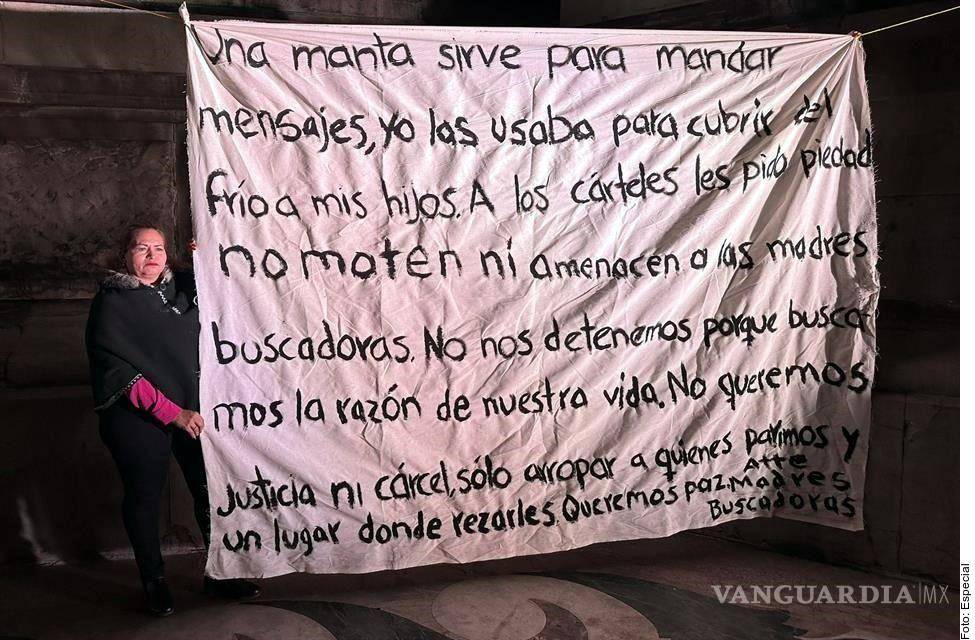 Una manta sirve para mandar
mensajes, yo las usaba para cubrir del
frío a mis hijos. A los cárteles les pido piedad
no maten ni amenacen a las madres
buscadoras. No nos detenemos porque busca-
mos la razón de nuestra vida. No queremos
justicia ni cárcel, sólo arropar a quienes parimos y
un lugar donde rezarles. Queremos paz.
Atte
Madres
Buscadoras
VANGUARDIA|MX
Foto: Especial